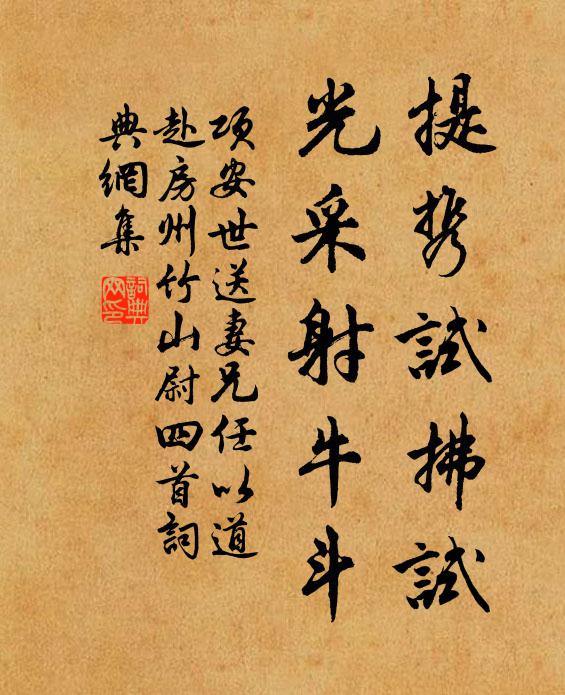 提携試拂試
光采射牛斗
项安世送妻兄任以道
赴房州竹山尉四首詞
典網集
詞典網印